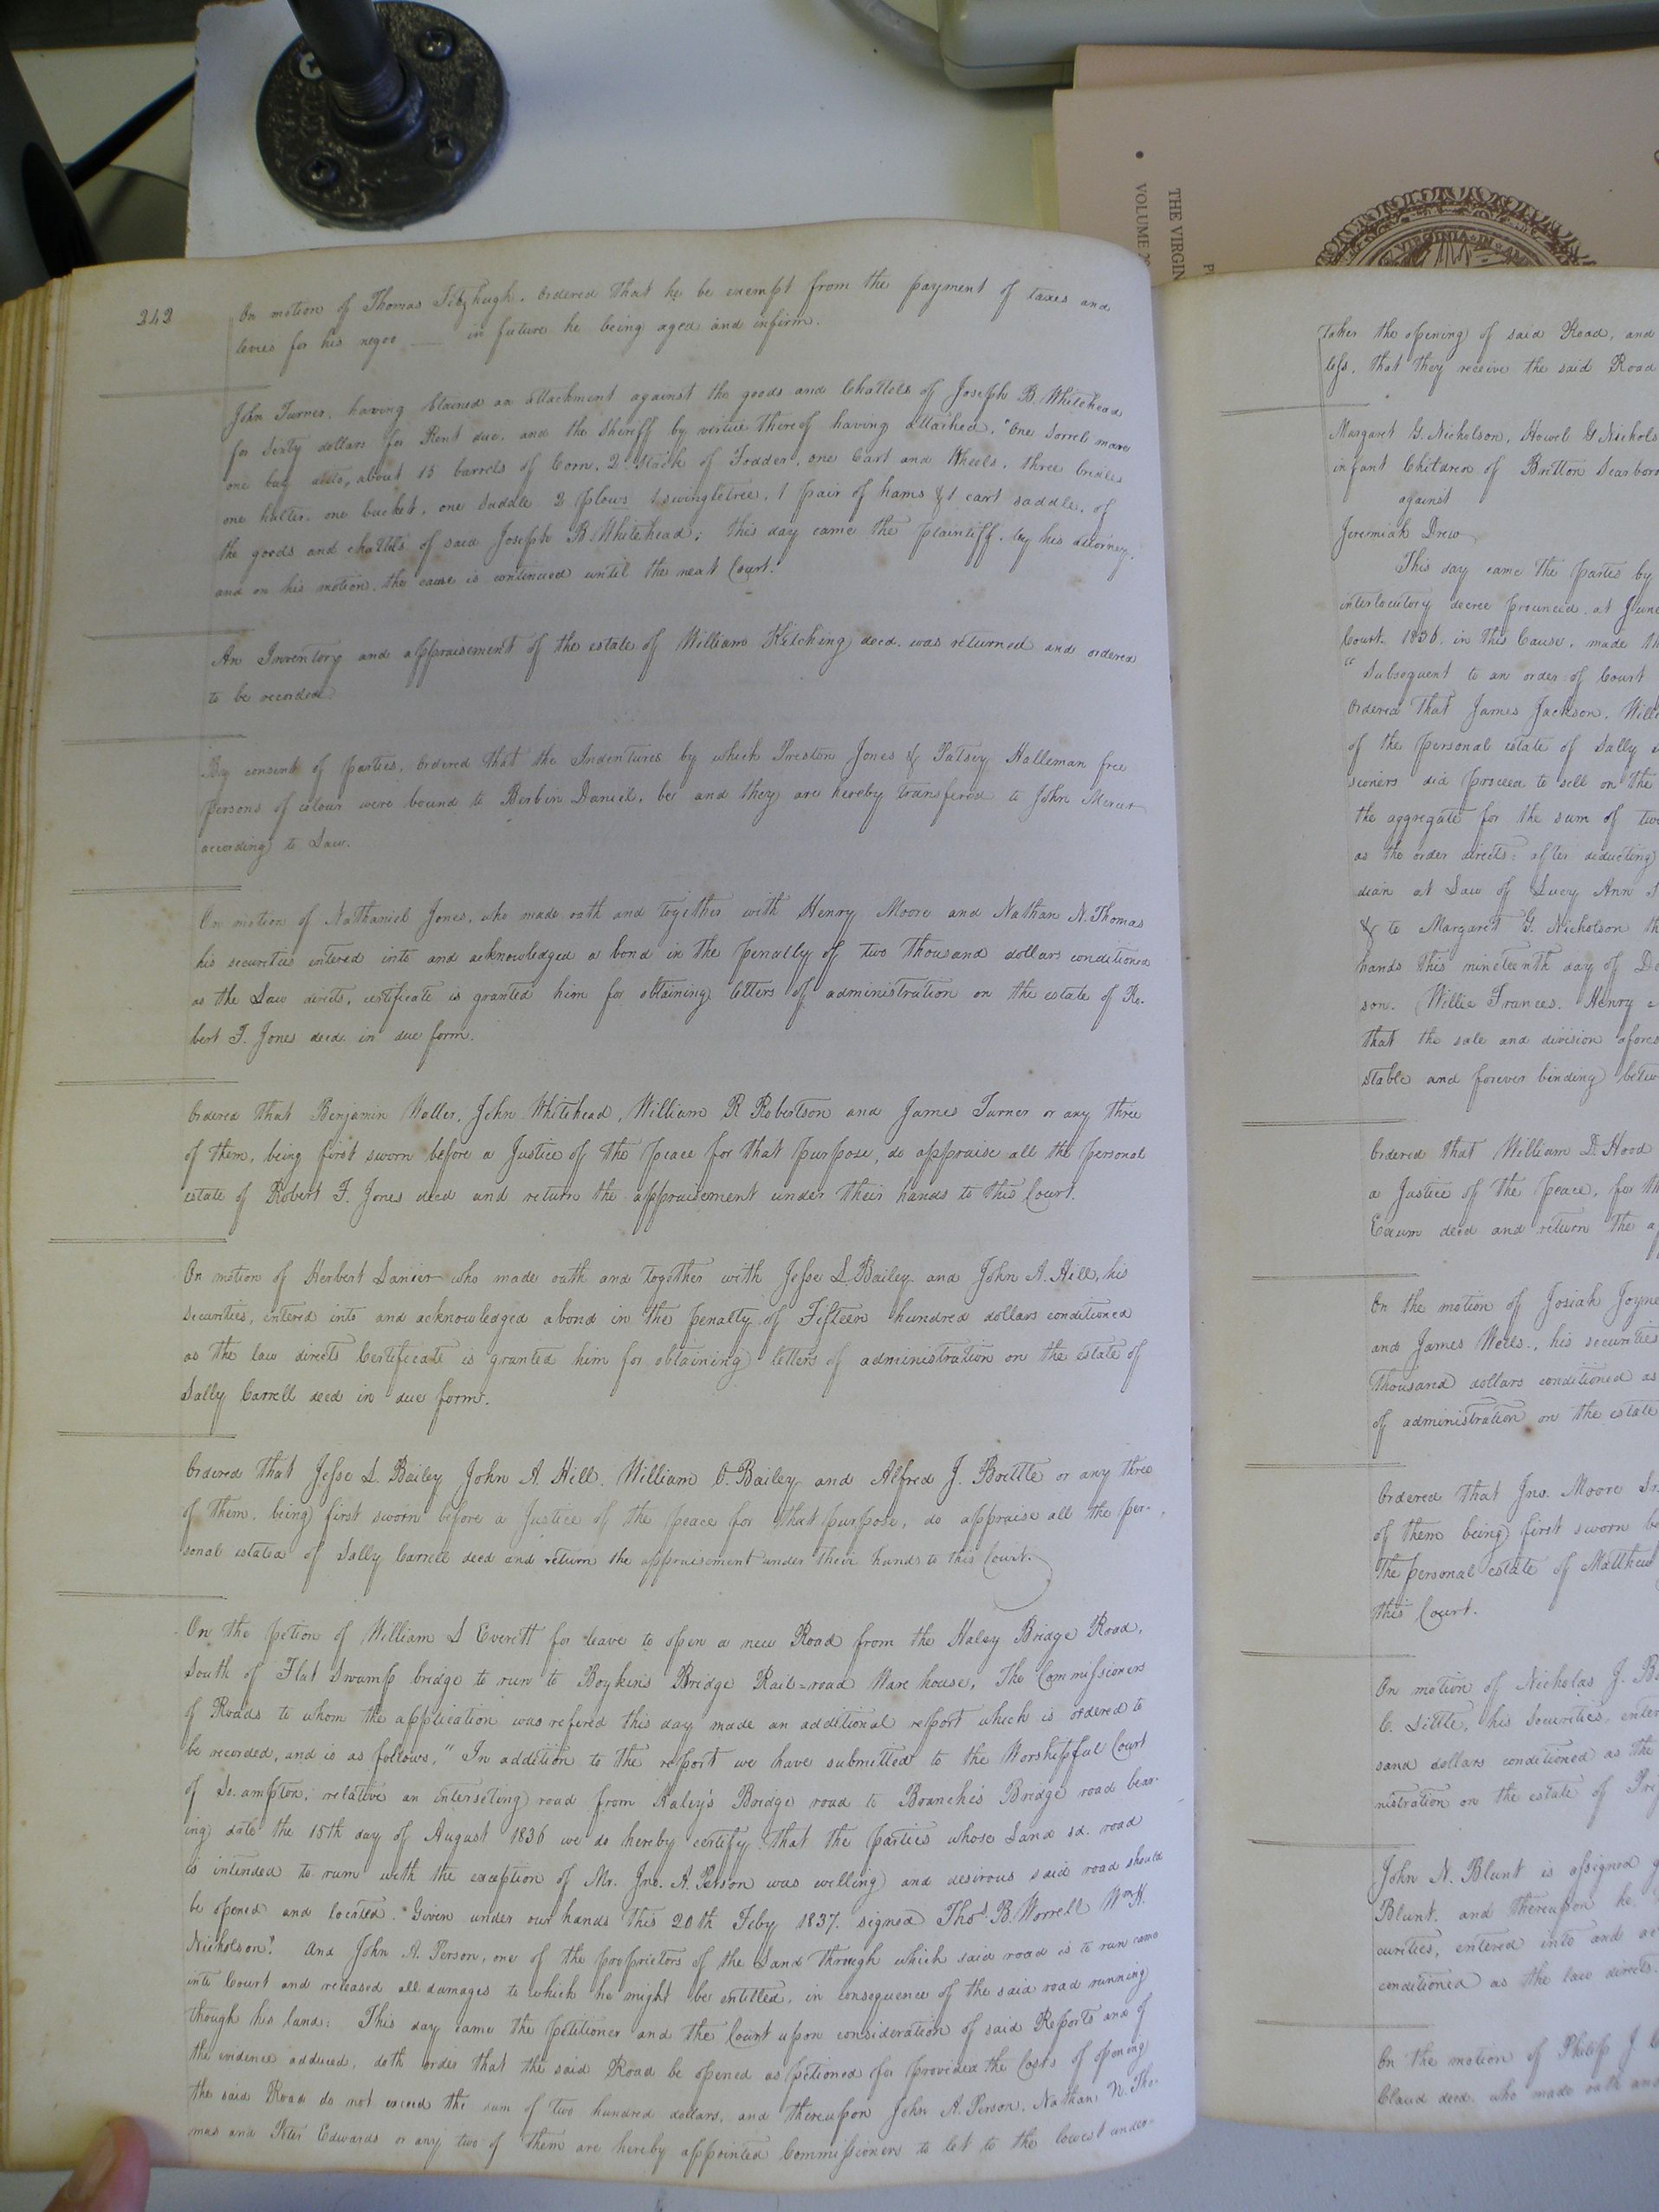 THE VIRGIN
VOLUME 7
VIRGINIA IN
242
On motion of Thomas Fitzhugh. Ordered that he be exempt from the payment of taxes and
levies for his negro ___ in future he being aged and infirm.
John Turner, having btained an attachment against the goods and Chattels of Joseph B. Whitehead
for Sixty dollars for Rent due, and the Sheriff by vertue thereof having attached, "One Sorrele mare
one bay about 15 barrels of Corn, 2 Stack of Fodder, one Cart and Wheels, three
one halter, one bucket, one Saddle 2 plows swingletrees, 1 pair of hams & 1 cart saddle, of
the goods and chattels of said Joseph B. Whitehead; this day came the plaintiff, by his attorney,
and on his motion, the cause is continued until the next Court.
An Inventory and appraisement of the estate of William Kitching decd. was returned and ordered
to be recorded.
By consent of parties, Ordered that the Indentures by which Preston Jones & Patsey Halleman free
persons of colour were bound to Berbin Daniel, be and they are hereby transfered to John Mercer
according to Law.
On motion of Nathaniel Jones, who made oath and together with Henry Moore and Nathan N. Thomas
his securities entered into and acknowledged a bond in the penalty of two thousand dollars conditioned
as the Law directs, certificate is granted him for obtaining letters of administration on the estate of Ro.
bert F. Jones decd. in due form.
Ordered that Benjamin Waller, John Whitehead, William R Robertson and James Turner or any three
of them, being first sworn before a Justice of the peace for that purpose, do appraise all the personal
estate of Robert F. Jones decd and return the appraisement under their hands to this Court.
On motion of Herbert Lanier who made oath and together with Jesse L Bailey and John A. Hill, his
Securities, entered into and acknowledged a bond in the penalty of Fifteen hundred dollars conditioned
as the law directs Certificate is granted him for obtaining letters of administration on the estate of
Sally Carrell decd in due form.
Ordered that Jesse L. Bailey John A. Hill, William O. Bailey and Alfred J. Brittle or any three
of them, being first sworn before a Justice of the peace for that purpose, do appraise all the per-
sonal estate of Sally Carrell decd and return the appraisement under their hands to this Court.
On the petion of William D Everett for leave to open a new Road from the Haley Bridge Road,
South of Flat Swamp bridge to run to Boykins Bridge Rail=road Ware house, The Commissioners
of Roads to whom the application was refered this day made an additional report which is ordered to
be recorded, and is as follows, "In addition to the report we have submitted to the Worshipful Court
of So. ampton, relative an interseting road from Haley's Bridge road to Branche's Bridge road bear-
ing date the 15th day of August 1836 we do hereby certify that the parties whose Land sd. road
is intended to run with the exception of Mr. Jno. A. Person was willing and desirous said road should
be opened and located. Given under our hands this 20th Feby 1837. signed Thos. B. Worrell Wm H.
Nicholson". And John A. Person, one of the proprietors of the Land through which said road is to run came
into Court and released all damages to which he might be entitled, in consequence of the said road running
though his land: This day came the petitioner and the Court upon consideration of said Reports and of
the evidence adduced, doth order that the said Road be opened as petioned for provided the Costs of opening
the said Road do not exceed the sum of two hundred dollars, and thereupon John A. Person, Nathan N. Tho-
mas and Peter Edwards or any two of them are hereby appointed Commissioners to let to the lowest under-
taker the opening of said Road, and
less, that they receive the said Road
Margaret G. Nicholson, Howell G Nichols
infant Children of Britton Dearbor
against
Jeremiah Drew
This day came the Parties by
interlocutory decree prounced at June
Court. 1836 in this Cause, made th
"Subsequent to an order of Court
Ordered that James Jackson, Will
of the personal estate of Sally
sioners did proceed to sell on the
the aggregate for the sum of two
as the order directs: after deducting
dian at Law of Lucy Ann
& to Margaret G. Nicholson th
hands this nineteenth day of De
son. Willie Frances. Henry
that the sale and division afores
stable and forever binding betw
Ordered that William D. Hood
a Justice of the Peace, for th
Exum decd and return the a
On the motion of Josiah Joyne
and James Wells., his securities
thousand dollars conditioned as
of administration on the estate
Ordered that Jno. Moore
of them being first sworn be
the personal estate of Matthew
this Court.
On motion of Nicholas J. B
C. Little, his Securities, enter
sand dollars conditioned as the
nistration on the estate of
John N. Blunt is assigned g
Blunt, and thereupon he
curities, entered into and ac
conditioned as the law directs.
On the motion of Philip J.
Claud decd. who made oath and